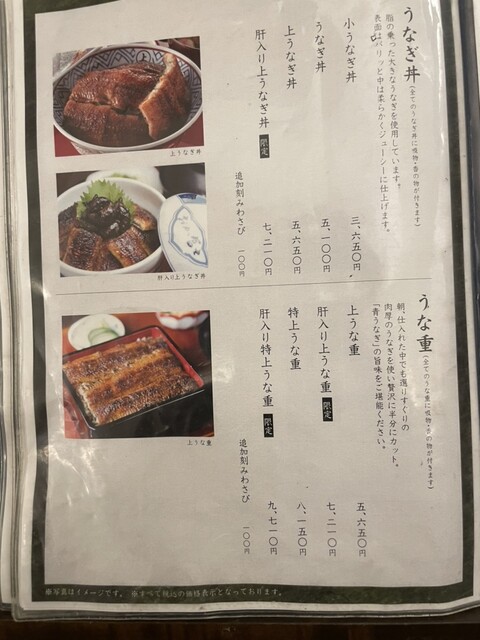 うなぎ丼(全てのうなぎ丼に吸物・香の物が付きます)
脂の乗った大きなうなぎを使用しています。
表面はパリッと中は柔らかくジューシーに仕上げます。
小うなぎ丼 三、六五〇円
うなぎ丼 五、一〇〇円
上うなぎ丼 五、六五〇円
肝入り上うなぎ丼 限定 七、二一〇円
追加刻みわさび 一〇〇円
上うなぎ丼
肝入り上うなぎ丼
うな重(全てのうな重に吸物・香の物が付きます)
朝、仕入れた中でも選りすぐりの
肉厚のうなぎを使い贅沢に半分にカット。
「青うなぎ」の旨味をご堪能ください。
上うな重 五、六五〇円
肝入り上うな重 限定 七、二一〇円
特上うな重 八、一五〇円
肝入り特上うな重 限定 九、七一〇円
追加刻みわさび 一〇〇円
上うな重
※写真はイメージです。 ※すべて税込の価格表示となっております。